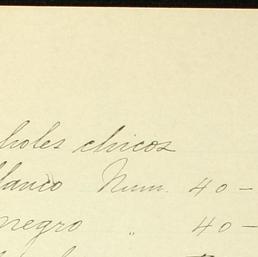 holes chicos
blanco Num. 40 -
negro " 40 -